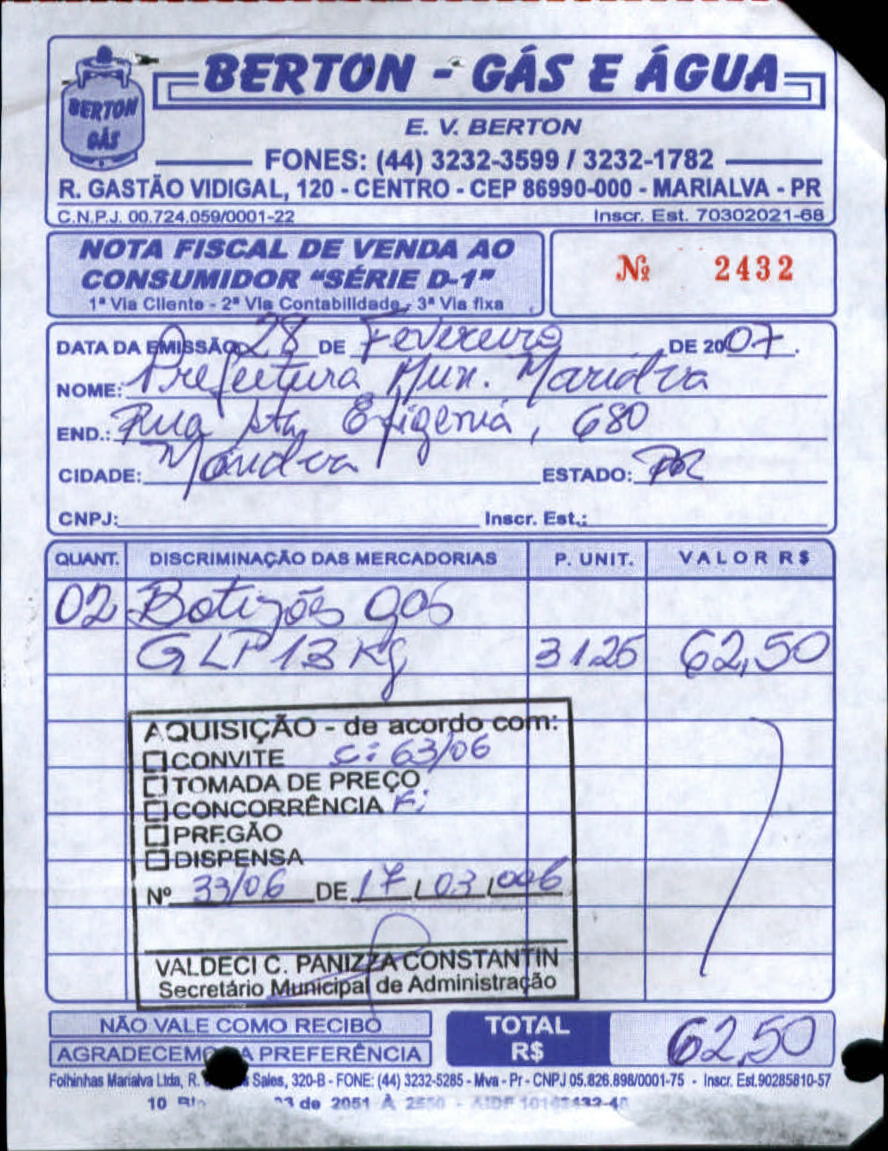 BERTON GÁS
BERTON - GÁS E ÁGUA
E. V. BERTON
FONES: (44) 3232-3599 / 3232-1782
R. GASTÃO VIDIGAL, 120 - CENTRO - CEP 86990-000 - MARIALVA - PR
C.N.P.J. 00.724.059/0001-22 Inscr. Est. 70302021-68
NOTA FISCAL DE VENDA AO
CONSUMIDOR "SÉRIE D-1"
1ª Via Cliente - 2ª Via Contabilidade - 3ª Via fixa
Nº 2432
DATA DA EMISSÃO 28 DE Fevereiro DE 2007.
NOME: Prefeitura Mun. Marialva
END.: Rua Sta Efigenia, 680
CIDADE: Marialva ESTADO: PR
CNPJ: Inscr. Est.:
QUANT. DISCRIMINAÇÃO DAS MERCADORIAS P. UNIT. VALOR R$
02 Botijões gás
GLP 13 Kg 31 25 62,50
AQUISIÇÃO - de acordo com:
CONVITE C: 63/06
TOMADA DE PREÇO
CONCORRÊNCIA F:
PREGÃO
DISPENSA
Nº 33/06 DE 17/03/006
VALDECI C. PANIZZA CONSTANTIN
Secretário Municipal de Administração
NÃO VALE COMO RECIBO
AGRADECEMOS A PREFERÊNCIA
TOTAL R$ 62,50
Folhinhas Marialva Ltda, R. Sales, 320-B - FONE: (44) 3232-5285 - Mva - Pr - CNPJ 05.826.898/0001-75 - Inscr. Est.90285810-57
10 de 2051 À 2550 - AIDF